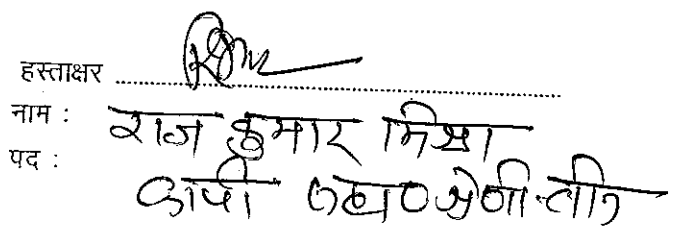 हस्ताक्षर
नाम : राज कुमार मिश्रा
पद : कार्या० सहा० श्रेणी-तीन